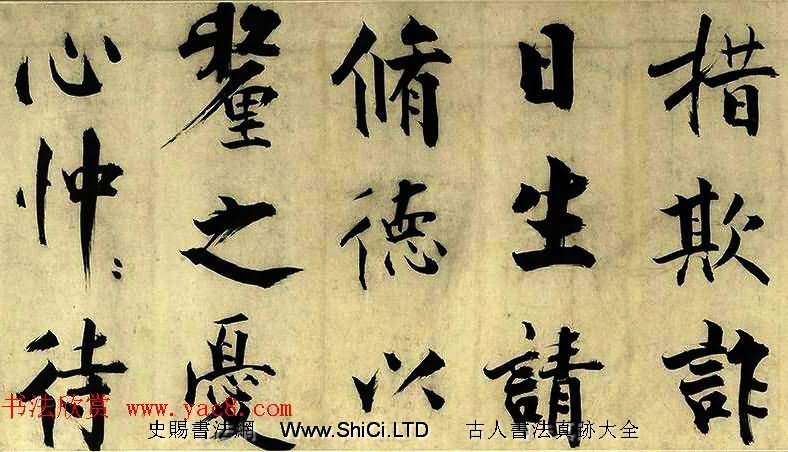 措欺詐
日生請
脩德以
釐之憂
心忡〻
待
书法欣赏 www.yac8.com
史賜書法網 Www.ShiCi.LTD 古人書法真跡大全